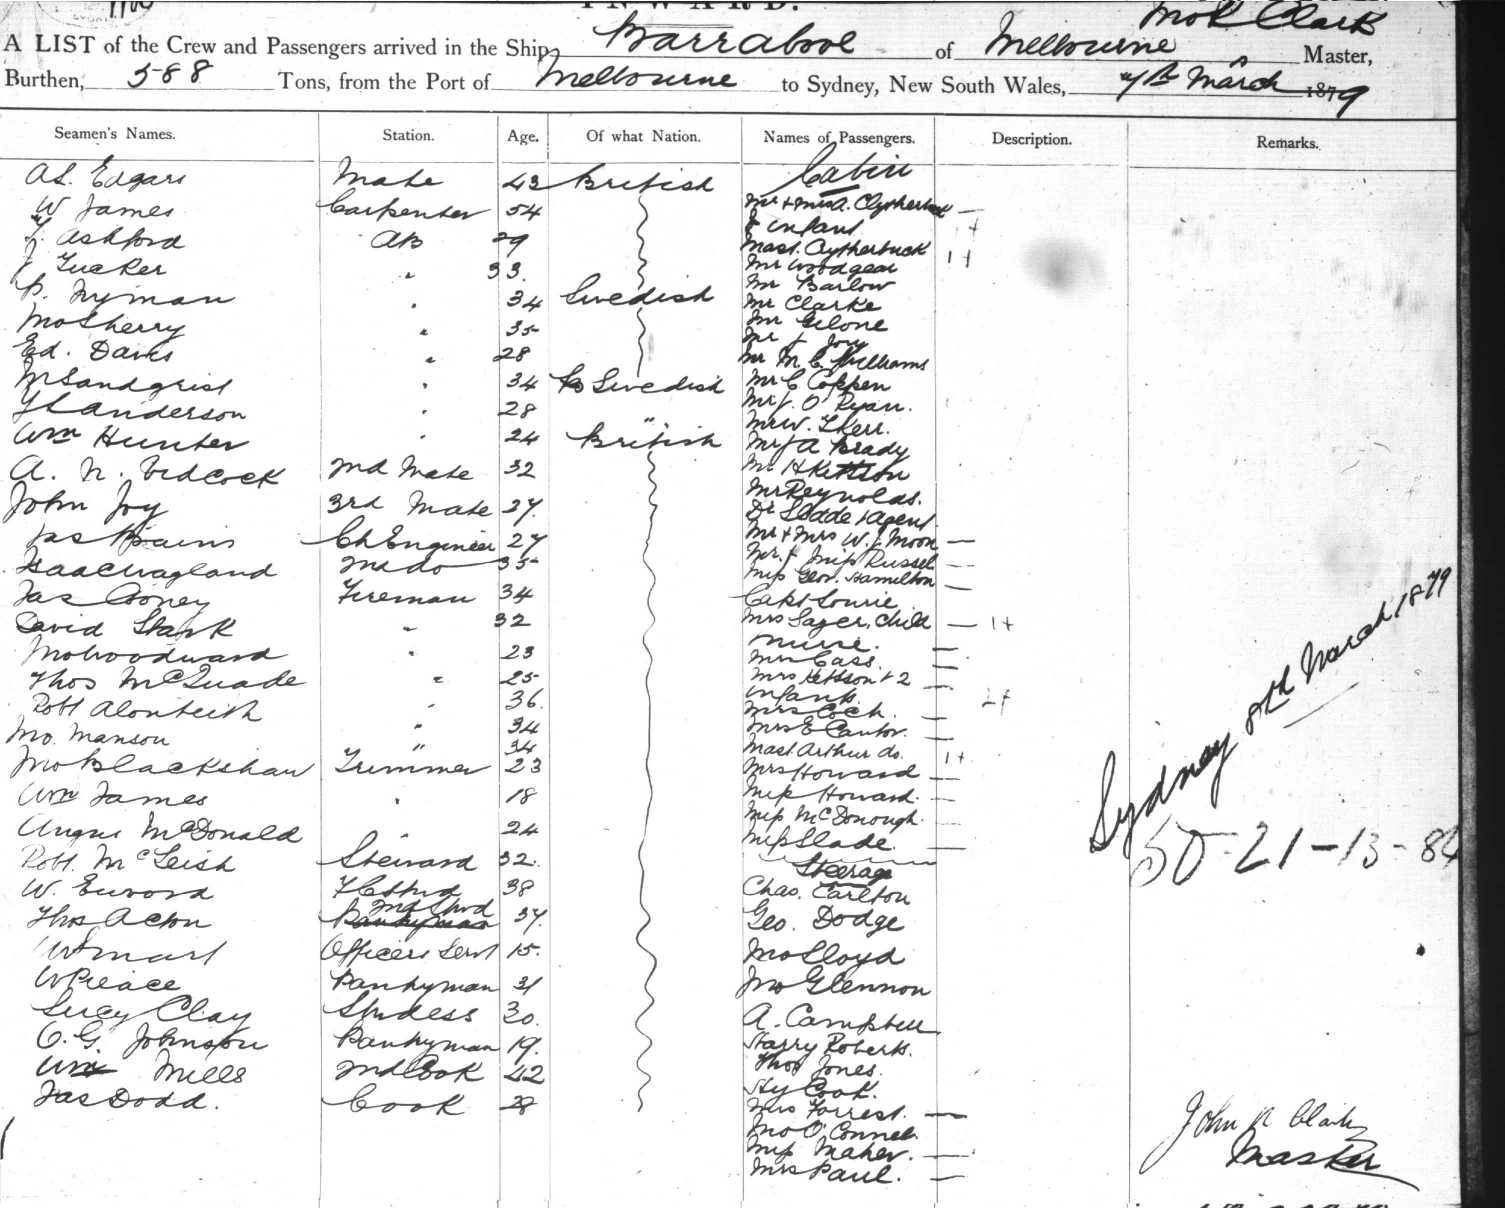 INWARD.
A LIST of the Crew and Passengers arrived in the Ship Barrabool of Melbourne Jno R Clark Master,
Burthen, 588 Tons, from the Port of Melbourne to Sydney, New South Wales, 7th March 1879
Seamen's Names. Station. Age. Of what Nation. Names of Passengers. Description. Remarks.
Edgars Mate 43 British Cabin
W James Carpenter 54 Mr + Mrs A. Clytherbuck
Ashford AB 29 & infant
Tucker " 33 Mast. Clytherbuck
P. Nyman " 34 Swedish Mr Woodgear
Mr Barlow
Mr Clarke
Jno Sherry " 35 Mr Gilone
Ed. Davis " 28 Mr J Joy
Mr M. C. Williams
Sandqrist " 34 Swedish Mr C Coppen
Anderson " 28 " Mr J. O'Ryan.
Wm Hunter " 24 British Mr W. Kerr.
Mr J A Brady
A. N. Vidcock 2nd Mate 32 Mr H Kettson
Mr Reynolds.
John Joy 3rd Mate 27 Dr Slade + Agent
Jas Bains Ch Engineer 27 Mr + Mrs W. J. Moon
Isaac Wagland 2nd do 35 Mr. J Miss Russel
Miss Geor. Hamilton
Jas Cooney Fireman 34 Capt Lourie
David Stark " 32 Mrs Sager, Child
nurse.
Jno Woodward " 23 Mrs Cass.
Thos McQuade " 25 Mrs Kettson + 2
Robt Alonteith " 36 infants.
Mrs Cock.
Jno. Manson " 34 Mrs E Cantor.
34 Mast Arthur do.
Jno Blackshaw Trimmer 23 Mrs Howard
Wm James " 18 Miss Howard.
Angus McDonald " 24 Miss McDonough.
Miss Slade.
Robt. McLeish Steward 32. Steerage
W. Euword 38 Chas. Carlton
2nd Stwd
Thos Acton 37. Geo. Dodge
W Smart Officers Servt 15. Jno Lloyd
W Preace Pantryman 31 Jno Glennon
Lucy Clay Stwdess 30. A. Campbell
O. G. Johnson Pantryman 19. Harry Roberts.
Thos Jones.
Wm Mills 2nd Cook 42 Hy Cook.
Jas Dodd. Cook 28 Mrs Forrest.
Jno O'Connel.
Miss Maher.
Mrs Paul.
Sydney 8th March 1879
50-21-13-84
John R Clark
Master